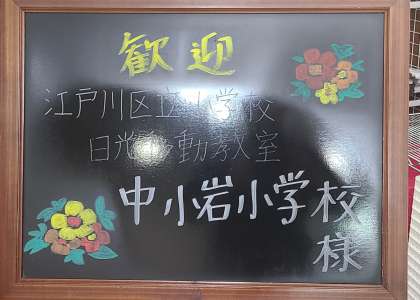 歓迎
江戸川区立小学校
日光移動教室
中小岩小学校
様